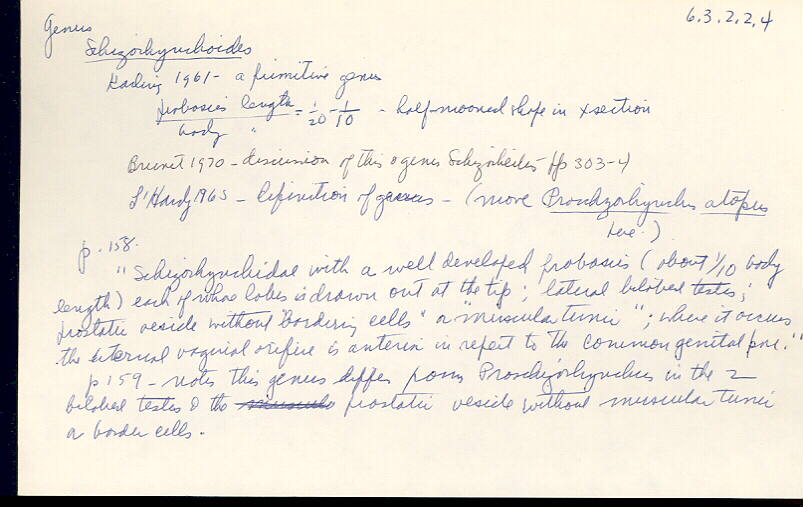 Genus 6.3.2.2.4
Schizorhynchoides
Karling 1961 - a primitive genus
proboscis length = 1/20 - 1/10 - half-mooned shape in xsection
body "
Brunet 1970 - discussion of this & genus Schizorhoides pp 303-4
L'Hardy 1965 - Definition of genus - (move Proschizorhynchus atopus
here.)
p. 158.
"Schizorhynchidae with a well developed proboscis (about 1/10 body
length) each of whose lobes is drawn out at the tip; lateral bilobed testes;
prostatic vesicle without "bordering cells" or "muscular tunic"; where it occurs
the external vaginal orifice is anterior in respect to the common genital pore."
p 159 - notes this genus differs from Proschizorhynchus in the 2
bilobed testes & the prostatic vesicle without muscular tunic
or border cells.